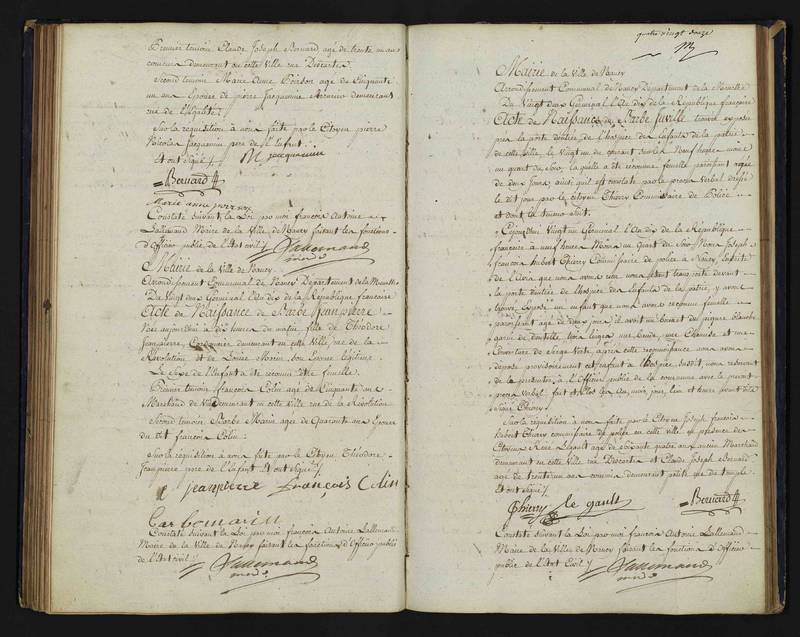 Premier temoin Claude Joseph Bernard agé de trente un ans
commis demeurant en cette Ville rue Descartes
Second temoin Marie Anne Poirson agée de Cinquante
un ans Epouse de pierre Jacquemin demeurant
rue de l'Egalité
Sur la requisition à nous faite par le Citoyen pierre
Nicolas Jacquemin pere de l'Enfant.
Et ont signé /.
M jacquemin
Bernard
Marie anne
Constaté suivant la Loi par moi françois Antoine
Lallemand Maire de la Ville de Nancy faisant les fonctions
d'Officier public de l'Etat civil /.
Lallemand
Mairie de la Ville de Nancy
Arrondissement Communal de Nancy Département de la Meurthe
Du Vingt deux Germinal l'An dix de la République francaise
Acte de Naissance de Barbe Jeanpierre
Née aujourd'hui à dix heures du matin fille de Théodore
Jeanpierre, Cordonnier demeurant en cette Ville rue de la
Révolution et de Louise Marin son Epouse légitime
Le Sexe de l'Enfant a été reconnu être femelle
Premier temoin françois Colin agé de Cinquante ans
Marchand de Vin Demeurant en cette Ville rue de la Révolution
Second temoin Barbe Marin agée de Quarante ans Epouse
du dit françois Colin
Sur la requisition à nous faite par le Citoyen Théodore
Jeanpierre pere de l'Enfant Et ont signé /.
jeanpierre François Colin
Barbe marin
Constaté suivant la Loi par moi francois Antoine Lallemand
Maire de la Ville de Nancy faisant les fonctions d'Officier public
de l'Etat civil /.
Lallemand
quatre vingt douze
Mairie de la Ville de Nancy
Arrondissement Communal de Nancy Département de la Meurthe
Du Vingt deux Germinal l'An dix de la République francaise
Acte de Naissance de Barbe Juville trouvé exposée
près la porte d'entrée de l'hospice des Enfants de la patrie
de cette ville, le Vingt un du courant sur les Neuf heures moins
un quart du soir, la quelle a été reconnue femelle paroissant agée
de deux jours ainsi qu'il est constaté par le procès Verbal dressé
le dit jour par le citoyen Thiery Commissaire de Police
et dont la teneur suit.
Cejourd'hui Vingt un Germinal l'An dix de la République
francaise à neuf heures Moins un Quart du Soir Nous Joseph
françois hubert Thiery Commissaire de police à Nancy, Ensuite
de l'avis que nous avons eu nous étant transporté devant
la porte d'entrée de l'hospice des Enfants de la patrie, y avons
trouvé Exposé un enfant que nous avons reconnu femelle
paroissant agé de deux jours il avoit un bonnet de piqure blanche
garni de dentelle, trois langes une bande, une Chemise et une
Couverture de Serge Verte, après cette reconnoissance nous avons
déposé provisoirement cet enfant à l'hospice susdit, nous reservant
de le presenter à l'Officier public de la commune avec le present
procès verbal. fait et Clos les an, mois, jour, lieu et heure avant dits
signé Thiery /.
Sur la requisition à nous faite par le Citoyen Joseph francois
hubert Thiery commissaire de police en cette ville en présence des
Citoyens René Legault agé de soixante quatre ans ancien Marchand
demeurant en cette Ville rue Descartes et Claude Joseph Bernard
agé de trente un ans commis demeurant petite rue du temple
Et ont signé /.
Thiery le gault Bernard
Constaté suivant la Loi par moi francois Antoine Lallemand
Maire de la Ville de Nancy faisant les fonctions d'Officier
public de l'Etat Civil /.
Lallemand